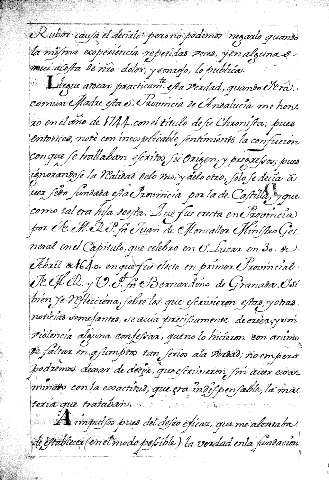 Rubor causa el decirlo; pero no podemos negarlo quando
la misma experiencia repetidas veces, y en alguna
a costa de mio dolor, y sonrojo, lo publica.
Llegué a tocar practicam.te esta verdad, quando
Madre esta S.ta Provincia de Andalucia me honró
en el año de 1744. con el titulo de su Chronista; pues
entonces, noté con inexplicable sentimiento la confusion
con que se hallaban escritos su Origen, y progressos; pues
ignorandose la realidad de lo uno, y de lo otro, solo se decia
fundada esta Provincia por la de Castilla, y que
como tal era hija de esta. Que fue erecta en Provincia
por N. M. R. P. fr. Juan de Moncaller Ministro Ge-
neral en el Capitulo, que celebró en S. Lucar en 30. de
Abril de 1640. en que fue electo en primer Provincial
N. M. R. y V. P. fr. Bernardino de Granada. Si
bien se reflecciona, sobre los que escrivieron estas, y otras
noticias semejantes, se avrá precissamente de creer, y sin
violencia alguna confessar, que no lo hicieron con animo
de faltar en assumptos tan serios a la verdad; no empero
podremos dexar de decir, que escrivieron sin aver exa-
minado con la exactitud, que era indispensable, la ma-
teria que trataban.
A impulsos pues del deseo eficaz, que me alentaba
de establecer (en el modo possible) la verdad en la fundacion